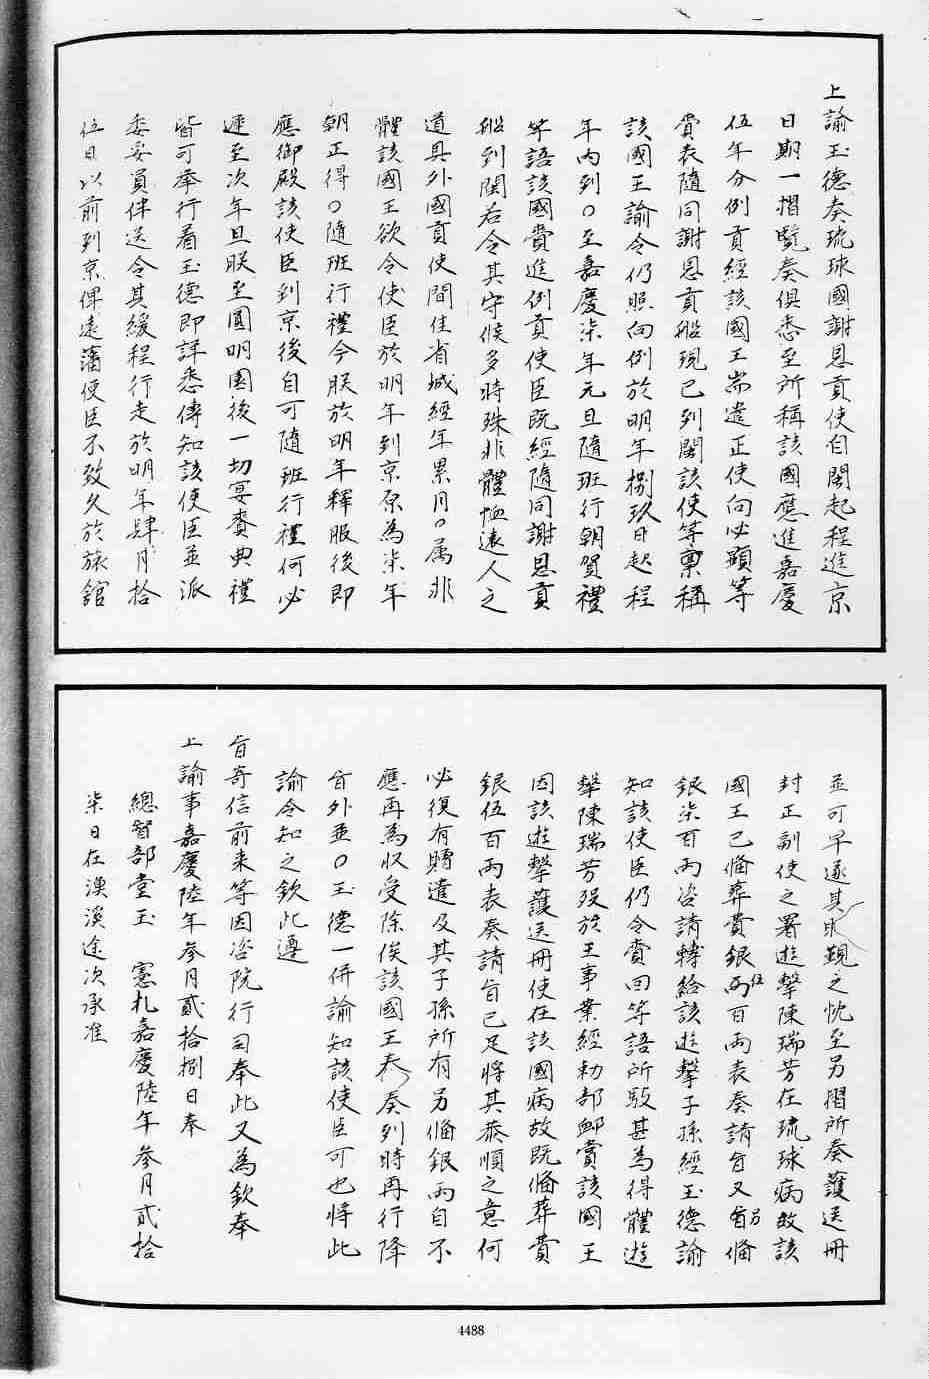 上諭玉德奏琉球國謝恩貢使自閩起程進京
日期一摺覽奏俱悉至所稱該國應進嘉慶
伍年分例貢經該國王耑遣正使向必顯等
賫表隨同謝恩貢船現已到閩該使等稟稱
該國王諭令仍照向例於明年捌玖月起程
年內到○至嘉慶柒年元旦隨班行朝賀禮
等語該國賫進例貢使臣既經隨同謝恩貢
船到閩若令其守候多時殊非體恤遠人之
道具外國貢使間住省城經年累月○属非
體該國王欲令使臣於明年到京原為柒年
朝正得○隨班行禮今朕於明年釋服後即
應御殿該使臣到京後自可隨班行禮何必
遲至次年旦朕至圓明園後一切宴賚典禮
皆可舉行着玉德即詳悉傳知該使臣並派
委妥員伴送令其緩程行走於明年肆月拾
伍日以前到京俾遠藩使臣不致久於旅館
並可早遂其覲之忱至另摺所奏護送冊
封正副使之署遊擊陳瑞芳在琉球病故該
國王已俻葬賫銀兩伍百兩表奏請旨又旨另俻
銀柒百兩咨請轉給該遊擊子孫經玉德諭
知該使臣仍令賫回等語所駁甚為得體遊
擊陳瑞芳歿於王事業經勅部卹賞該國王
因該遊擊護送冊使在該國病故既俻葬賫
銀伍百兩表奏請旨已足將其恭順之意何
必復有贈遣及其子孫所有另俻銀兩自不
應再為收受除俟該國王奏列時再行降
旨外並○玉德一併諭知該使臣可也將此
諭令知之欽此遵
旨寄信前来等因咨院行司奉此又為欽奉
上諭事嘉慶陸年參月貳拾捌日奉
總督部堂玉　憲札嘉慶陸年參月貳拾
柒日在漁溪途次承准
4488